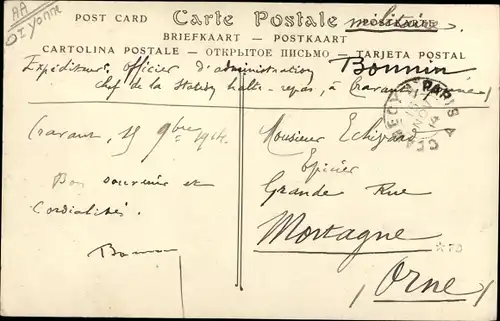 AA
Yonne
POST CARD Carte Postale POSTKARTE
militaire
BRIEFKAART — POSTKAART
CARTOLINA POSTALE — ОТКРЫТОЕ ПИСЬМО — TARJETA POSTAL
Expéditeur: Officier d'administration Bonnin
chef de la Station halte-repas, à Cravant (Yonne)
PARIS A
Cravant, 15 9bre 1914.
Bon souvenir et
Cordialités.
Bonnin
Monsieur
Epicier
Grande Rue
Mortagne
(Orne)